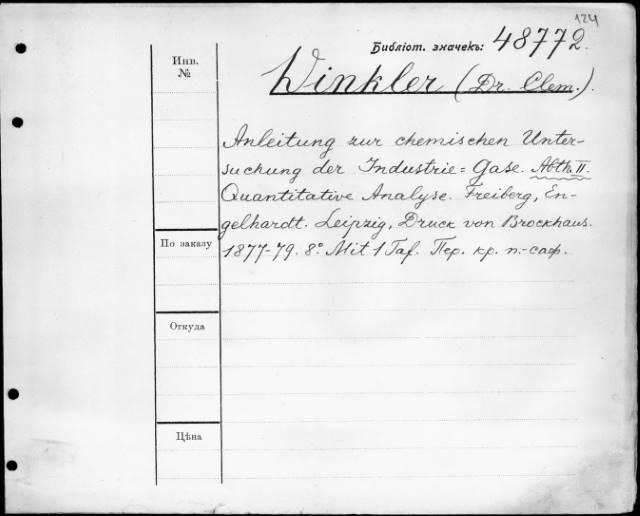 124
Библіот. значекъ: 48772.
Инв.
№
Winkler (Dr. Clem.).
Anleitung zur chemischen Unter-
suchung der Industrie=Gase. Abth. II.
Quantitative Analyse. Freiberg, En-
gelhardt. Leipzig, Druck von Brockhaus.
1877-79. 8° Mit 1 Taf. Пер. кр. п.-саф.
По заказу
Откуда
Цѣна